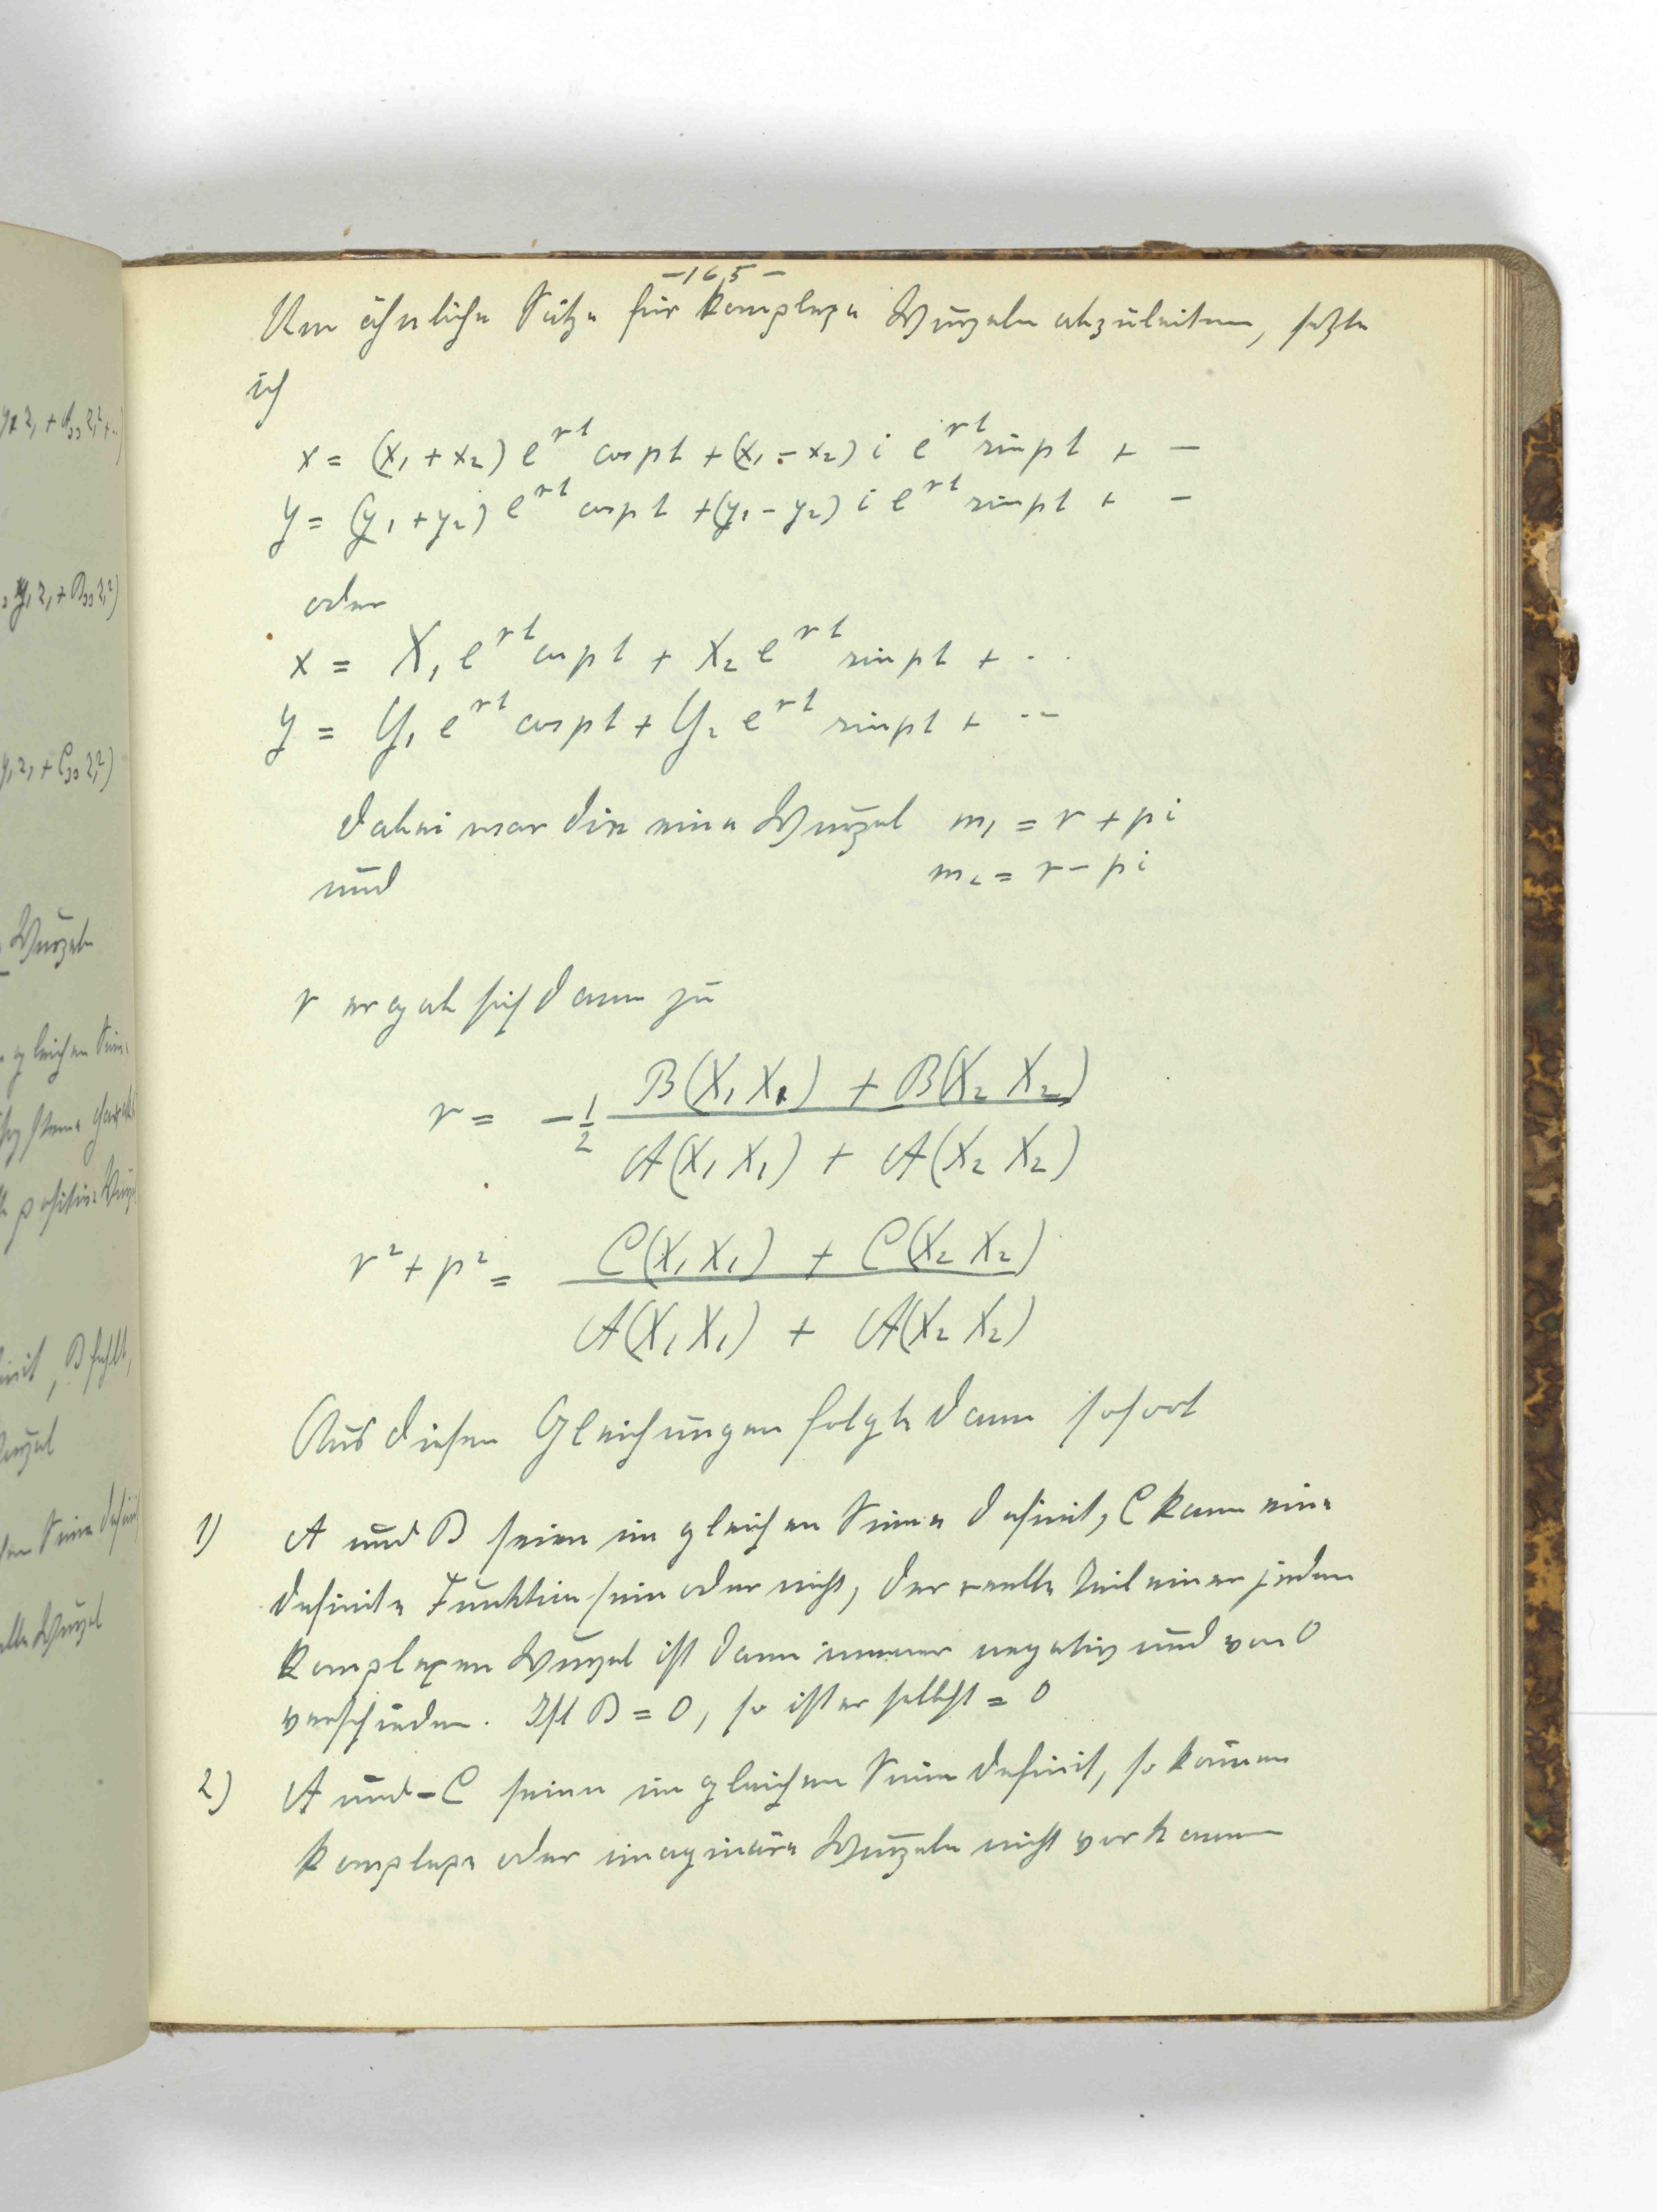 -165-
Um ähnliche Sätze für komplexe Wurzeln abzuleiten, setzte
ich
x = (x₁ + x₂) e^{rt} cos pt + (x₁ - x₂) i e^{rt} sin pt + —
y = (y₁ + y₂) e^{rt} cos pt + (y₁ - y₂) i e^{rt} sin pt + —
oder
x = X₁ e^{rt} cos pt + X₂ e^{rt} sin pt + ..
y = Y₁ e^{rt} cos pt + Y₂ e^{rt} sin pt + ..
dabei war die eine Wurzel m₁ = r + pi
und m₂ = r - pi
r ergab sich dann zu
r = -1/2 (B(X₁X₁) + B(X₂X₂)) / (A(X₁X₁) + A(X₂X₂))
r² + p² = (C(X₁X₁) + C(X₂X₂)) / (A(X₁X₁) + A(X₂X₂))
Aus diesen Gleichungen folgte dann sofort
1) A und B seien im gleichen Sinne definit, C kann eine
definite Funktion sein oder nicht, der reelle Teil einer jeden
komplexen Wurzel ist dann immer negativ und von 0
verschieden. Ist B = 0, so ist er selbst = 0
2) A und -C seien im gleichen Sinne definit, so können
komplexe oder imaginäre Wurzeln nicht vorkommen
y₁z₁ + A₃₃z₁² + ..)
y₁z₁ + B₃₃z₁²)
y₁z₁ + C₃₃z₁²)
Wurzeln
gleichen Sin-
positive Wurz
B fehlt,
Wurzel
Sinne definit
Wurzel